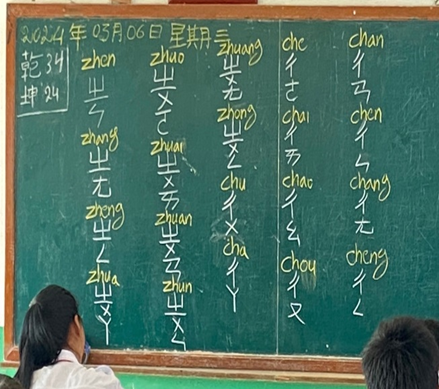 2024 年 03月06日 星期三
乾 34
坤 24
zhen
ㄓㄣ
zhang
ㄓㄤ
zheng
ㄓㄥ
zhua
ㄓㄨㄚ
zhuo
ㄓㄨㄛ
zhuai
ㄓㄨㄞ
zhuan
ㄓㄨㄢ
zhun
ㄓㄨㄣ
zhuang
ㄓㄨㄤ
zhong
ㄓㄨㄥ
chu
ㄔㄨ
cha
ㄔㄚ
che
ㄔㄜ
chai
ㄔㄞ
chao
ㄔㄠ
chou
ㄔㄡ
chan
ㄔㄢ
chen
ㄔㄣ
chang
ㄔㄤ
cheng
ㄔㄥ